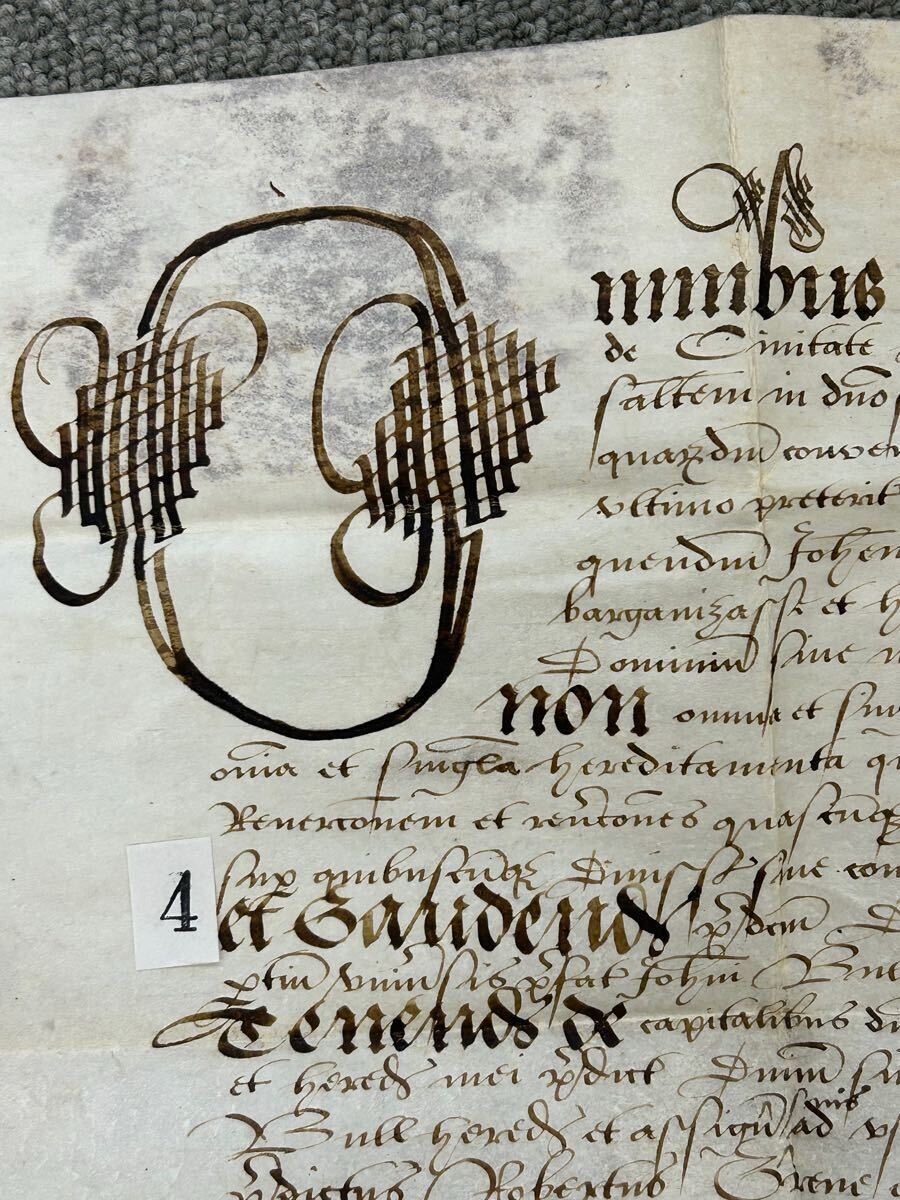 Omnibus
de Civitate
saltem in dno
quarzdm conven
ultimo preterit
quendm Johem
barganizasse et h
Dominiu sive
non omnia et sin
omia et singla hereditamenta q
Revercionem et revercones quascunqz
sup quibuscunqz Dimiss sive con
4
et Gaudend pdcm
ptin univsis pfat Johni Bul
Tenend de capitalibus d
et hered mei pdict Dnim s
suis
Bull hered et assign ad us
pdictus Robertus Grene